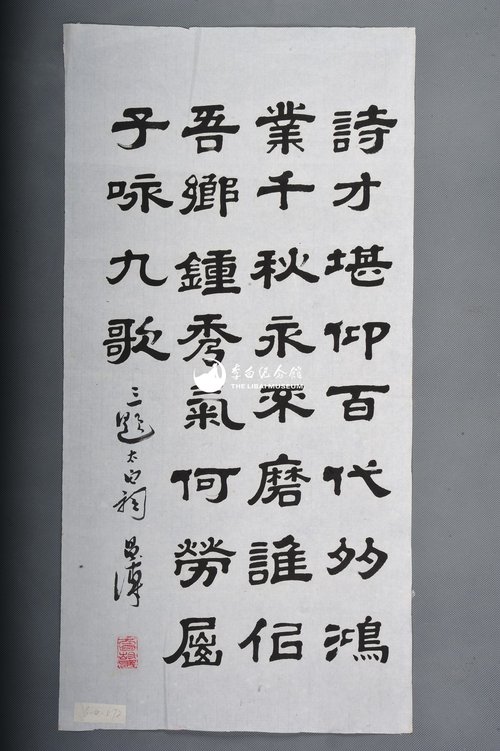 詩才堪仰百代多鴻
業千秋永磨誰佀
吾鄉鍾秀氣何勞屈
子咏九歌
三題太白祠
李白纪念馆
THE LIBAI MUSEUM